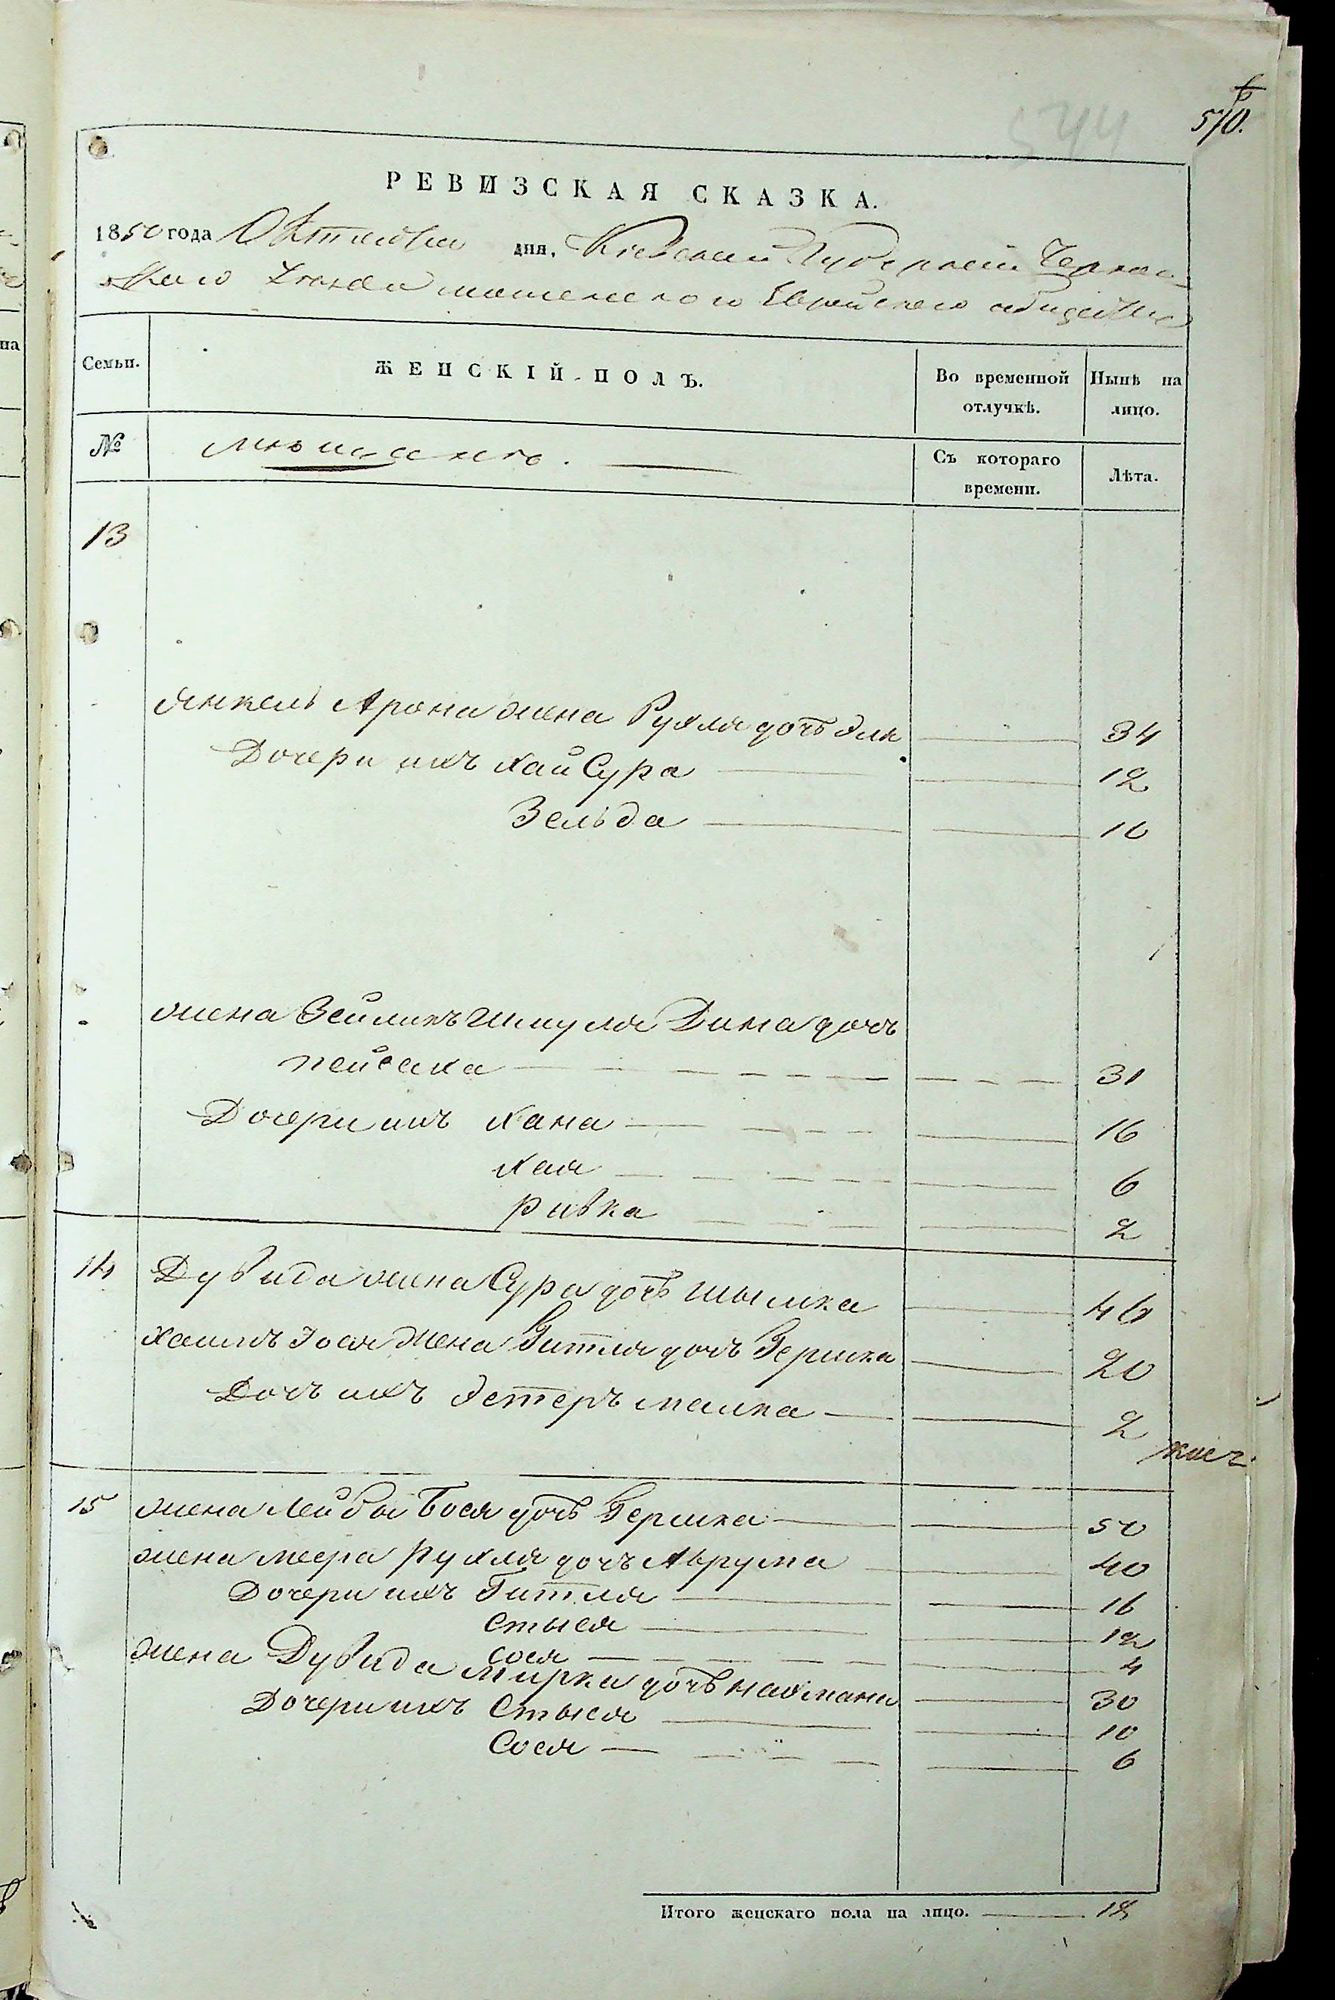 6
570.
544
РЕВИЗСКАЯ СКАЗКА.
1850 года Октября дня, Киевской Губернии Черкас-
скаго Уезда мошенского Еврейского общества
Семьи. ЖЕНСКІЙ ПОЛЪ. Во временной отлучкѣ. Нынѣ на лицо.
№ мѣщанъ. Съ котораго времени. Лѣта.
13
Янкель Арона жена Рухля дочь Эли 34
Дочери ихъ Хай Сура 12
Зельда 10
жена Зейликъ Шмуля Дина дочь
пейсаха 31
Дочери ихъ Хана 16
Хая 6
ривка 2
14 Дувида жена Сура дочь шымка 46
Хаимъ Іося жена Гитля дочь Гершка 20
Дочь ихъ Эстеръ малка 2
15 жена Лейбы Бося дочь Гершка 50
жена меера рухля дочь Аврума 40
Дочери ихъ Гитля 16
стыся 12
сося 4
жена Дувида мирка дочь нахмана 30
Дочери ихъ Стыся 10
Сося 6
Итого женскаго пола на лицо. 18